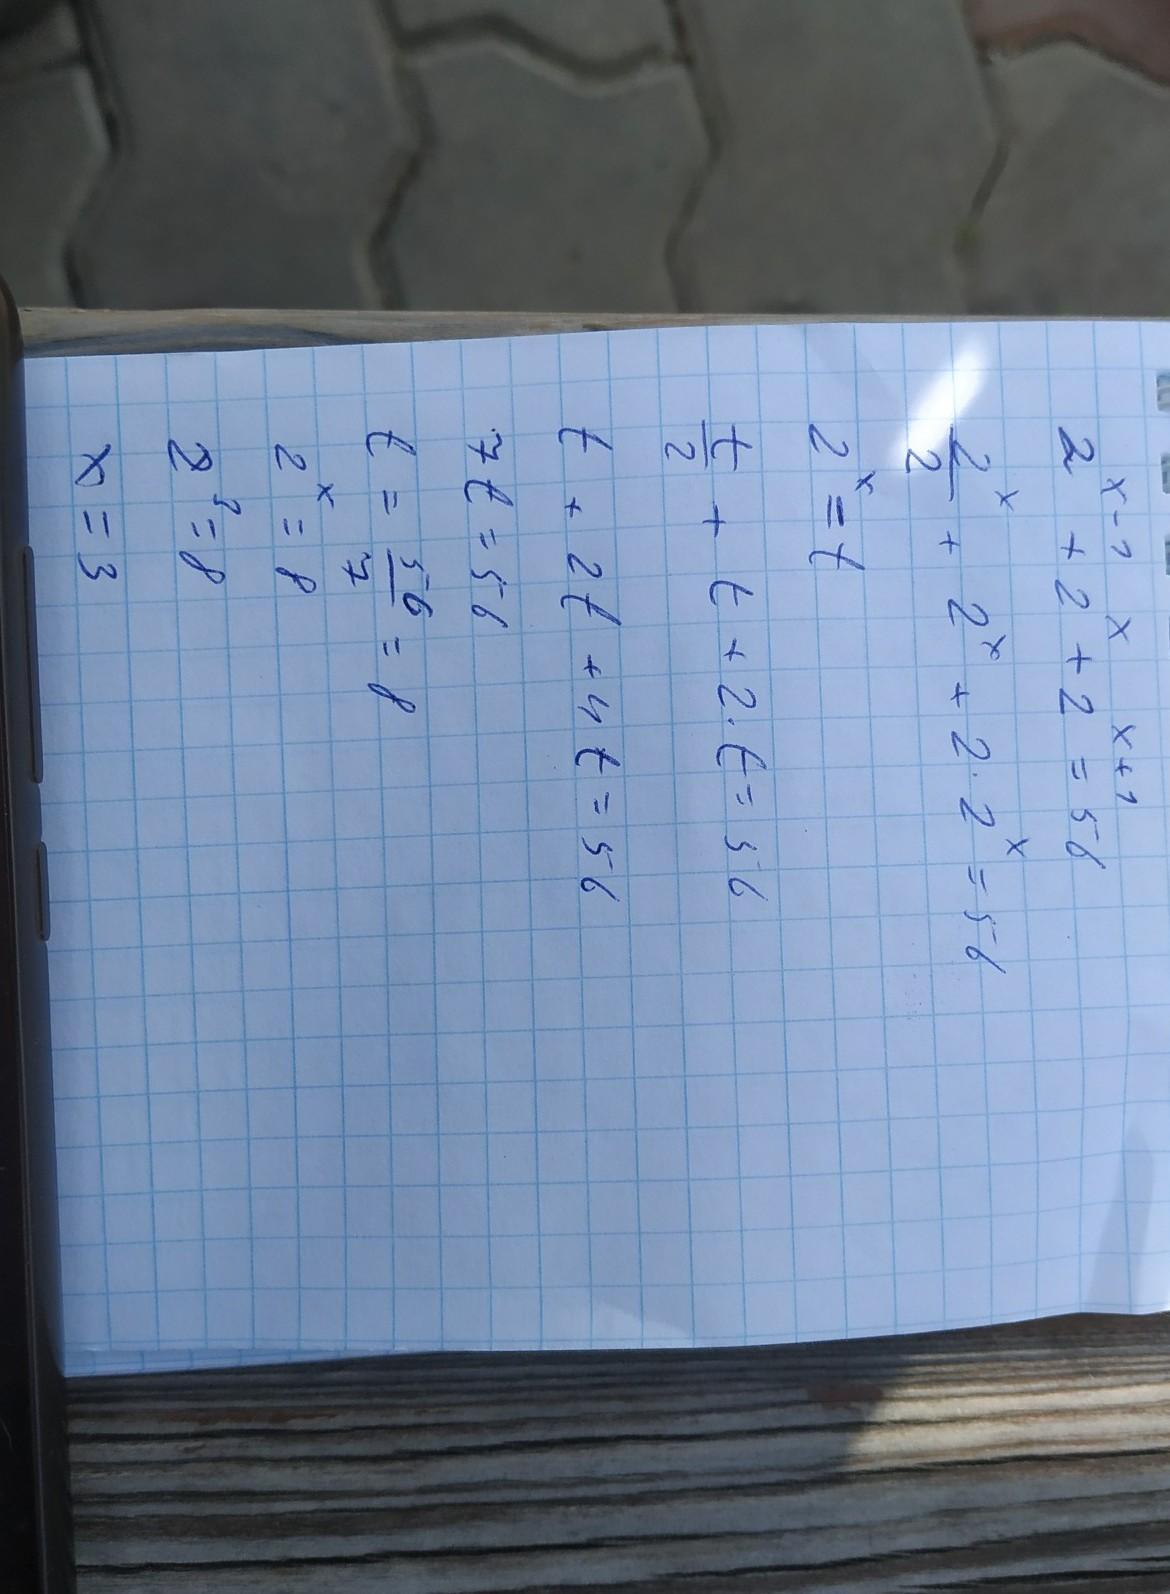 2^{x-1} + 2^{x} + 2^{x+1} = 56
\frac{2^{x}}{2} + 2^{x} + 2 \cdot 2^{x} = 56
2^{x} = t
\frac{t}{2} + t + 2 \cdot t = 56
t + 2t + 4t = 56
7t = 56
t = \frac{56}{7} = 8
2^{x} = 8
2^{3} = 8
x = 3